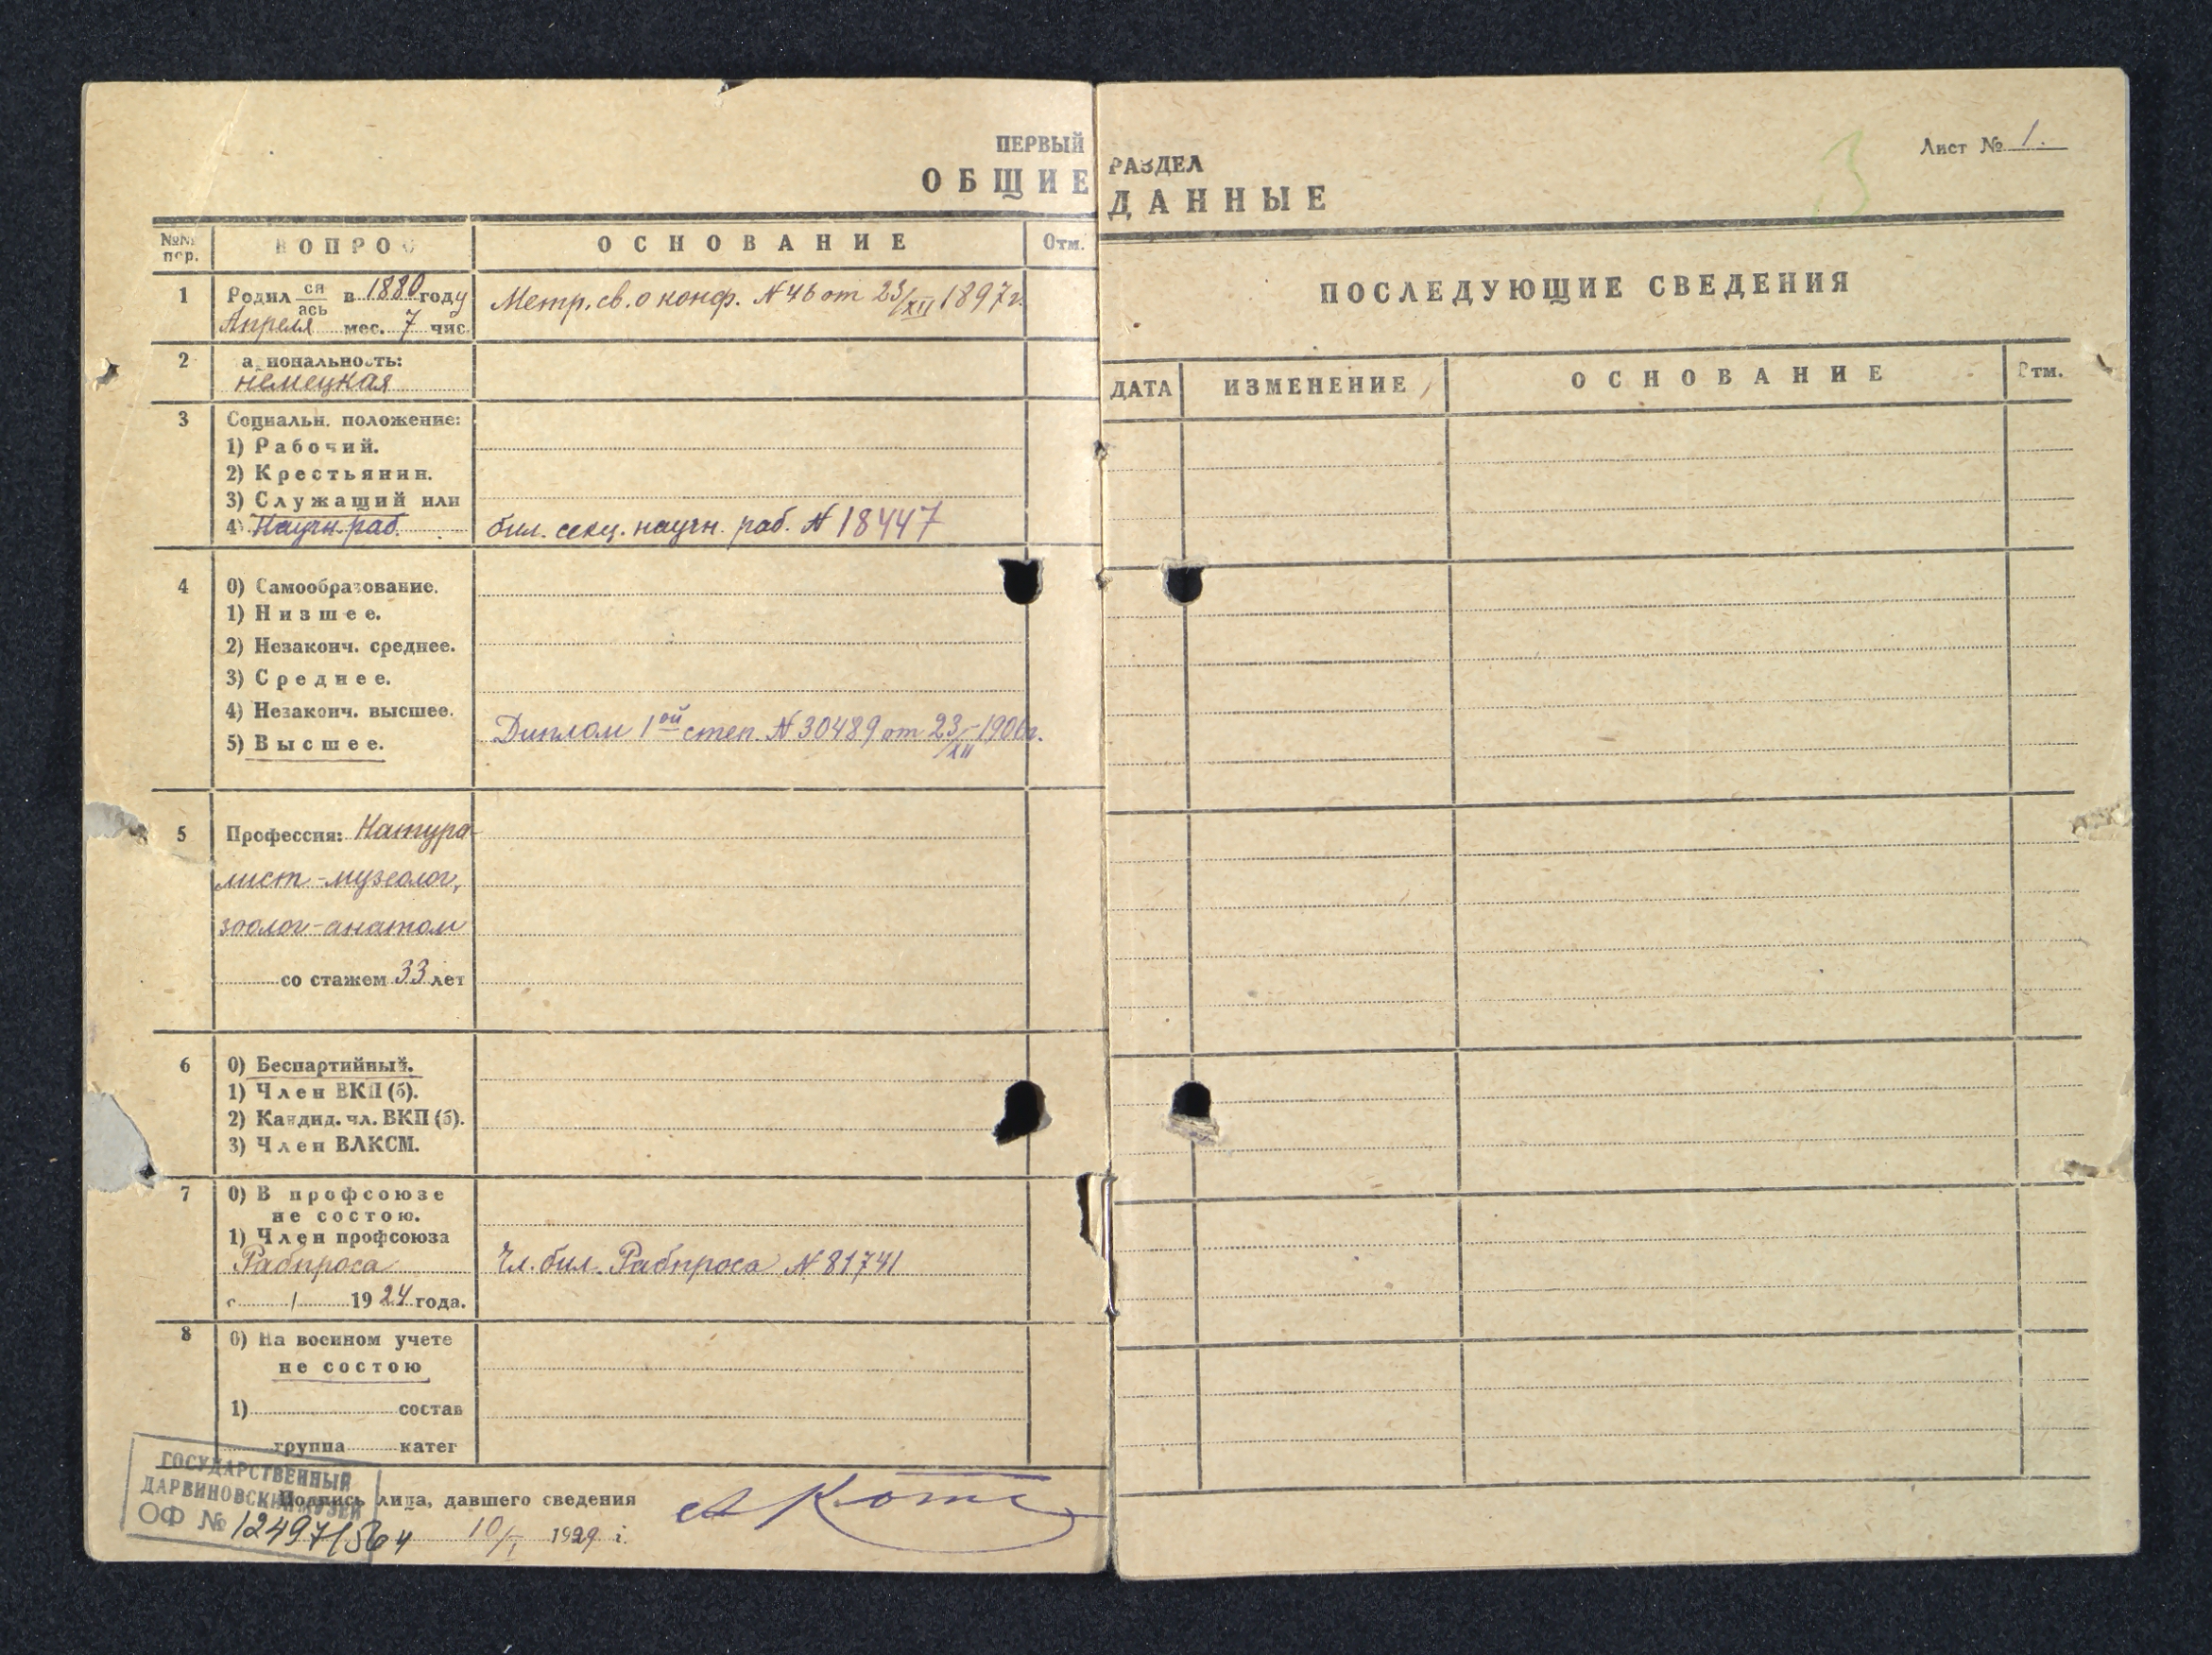 ПЕРВЫЙ РАЗДЕЛ
ОБЩИЕ ДАННЫЕ
Лист № 1.
3
№№ пор.
ВОПРОС
ОСНОВАНИЕ
Отм.
1
Родил ся ась в 1880 году
Апреля мес. 7 чис.
Метр. св. о конф. N 46 от 23/XII 1897 г.
2
ациональность:
немецкая
3
Социальн. положение:
1) Рабочий.
2) Крестьянин.
3) Служащий или
4) Научн. раб.
бил. секц. научн. раб. N 18447
4
0) Самообразование.
1) Низшее.
2) Незаконч. среднее.
3) Среднее.
4) Незаконч. высшее.
5) Высшее.
Диплом 1ой степ. N 30489 от 23/XII - 1906 г.
5
Профессия: Натура-
лист-музеолог,
зоолог-анатом
со стажем 33 лет
6
0) Беспартийный.
1) Член ВКП (б).
2) Кандид. чл. ВКП (б).
3) Член ВЛКСМ.
7
0) В профсоюзе
не состою.
1) Член профсоюза
Рабпроса
Чл. бил. Рабпроса N 81741
с 1 1924 года.
8
0) На военном учете
не состою
1) состав
группа катег
Подпись лица, давшего сведения
АКотс
10/I 1929 г.
ГОСУДАРСТВЕННЫЙ
ДАРВИНОВСКИЙ МУЗЕЙ
ОФ № 12497/564
ПОСЛЕДУЮЩИЕ СВЕДЕНИЯ
ДАТА
ИЗМЕНЕНИЕ
ОСНОВАНИЕ
Отм.